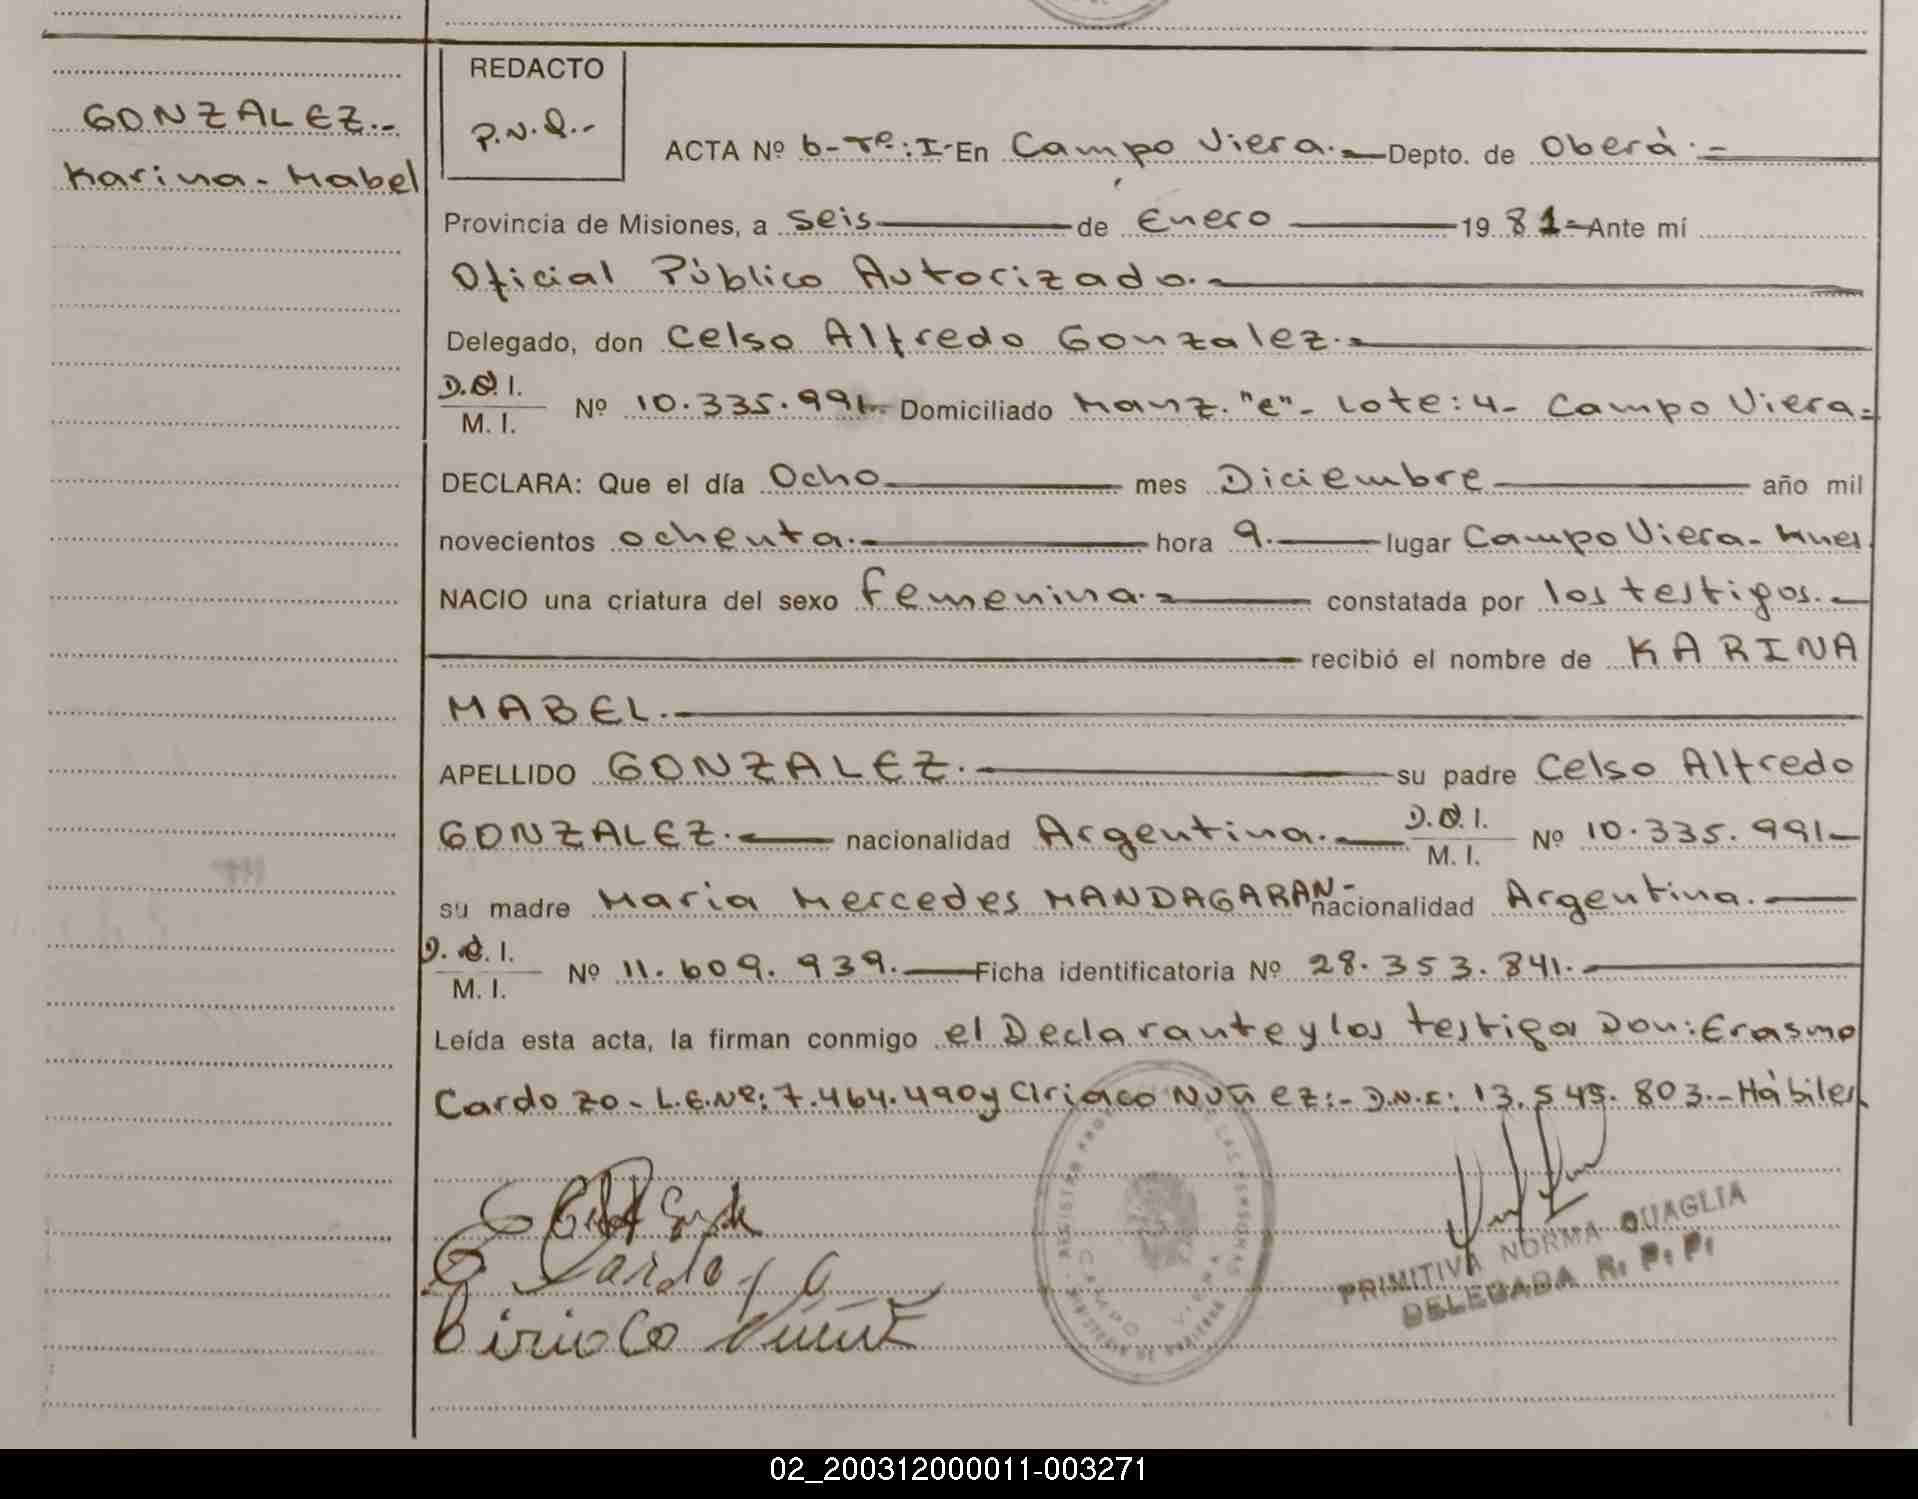 GONZALEZ.-
Karina - Mabel
REDACTO
P.N.Q.-
ACTA Nº 6-Tº:I- En Campo Viera.- Depto. de Oberá.-
Provincia de Misiones, a seis de Enero 1981- Ante mí
Oficial Público Autorizado.-
Delegado, don Celso Alfredo Gonzalez.-
D.N.I.
M. I. Nº 10.335.991- Domiciliado Manz. "e"- Lote: 4- Campo Viera=
DECLARA: Que el día Ocho mes Diciembre año mil
novecientos ochenta.- hora 9.- lugar Campo Viera- Mnes
NACIO una criatura del sexo femenina.- constatada por los testigos.-
recibió el nombre de KARINA
MABEL.-
APELLIDO GONZALEZ.- su padre Celso Alfredo
GONZALEZ.- nacionalidad Argentina.- D.N.I.
M. I. Nº 10.335.991-
su madre Maria Mercedes MANDAGARAN- nacionalidad Argentina.-
D.N.I.
M. I. Nº 11.609.939.- Ficha identificatoria Nº 28.353.841.-
Leída esta acta, la firman conmigo el Declarante y los testigos Don: Erasmo
Cardozo - L.E.Nº: 7.464.490 y Ciriaco Nuñez:- D.N.I: 13.545.803.- Hábiles
E Cardozo
Ciriaco Nuñez
CAMPO VIERA
PRIMITIVA NORMA QUAGLIA
DELEGADA R. P. P.
02_200312000011-003271